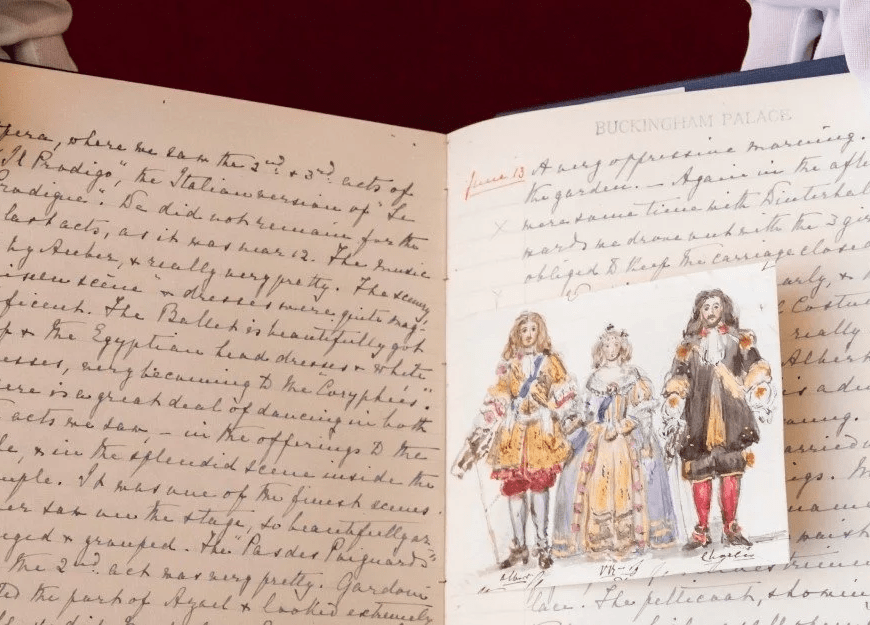 opera, where we saw the 2nd. & 3rd. acts of
"Il Prodigo", the Italian version of "Le
Prodigue". We did not remain for the
last acts, as it was near 12. The music
by Auber, & really very pretty. The scenery,
"mise en scène" & dresses were quite mag-
nificent. The Ballet is beautifully got
up & the Egyptian head dresses & white
dresses, very becoming to the Coryphées.
There is a great deal of dancing in both
acts we saw, – in the offerings to the
& in the splendid scene inside the
Temple. It was one of the finest scenes
ever saw on the stage, so beautifully ar
ranged & grouped. The "Pas des Poignards"
the 2nd. act was very pretty. Gardoni
the part of Azael & looked extremely
BUCKINGHAM PALACE
June 13 A very oppressive morning.
the garden. – Again in the
more some time with Winterhal
wards we drove out with the 3
obliged to keep the carriage closed
early, &
Costu
really
Albert
is a
young.
carried
wigs.
waist
Albert
VR
Charles
lace. The petticoat, showin